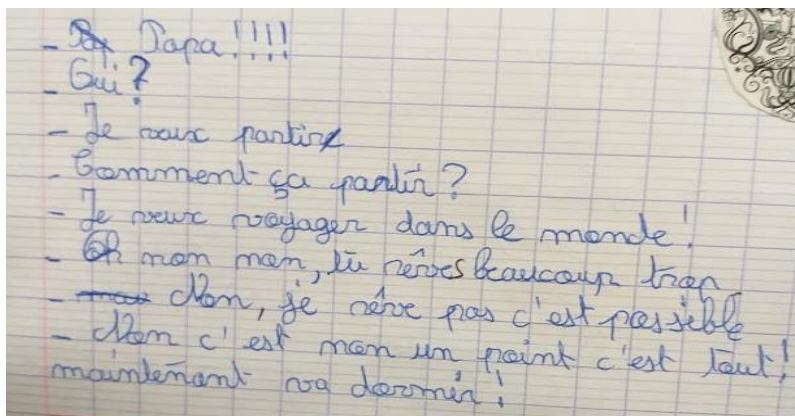 - Papa!!!!
- Oui?
- Je veux partir
- Comment ça partir?
- Je veux voyager dans le monde!
- Oh non non, tu rêves beaucoup trop
- Non, je rêve pas c'est possible
- Non c'est non un point c'est tout!
maintenant va dormir!